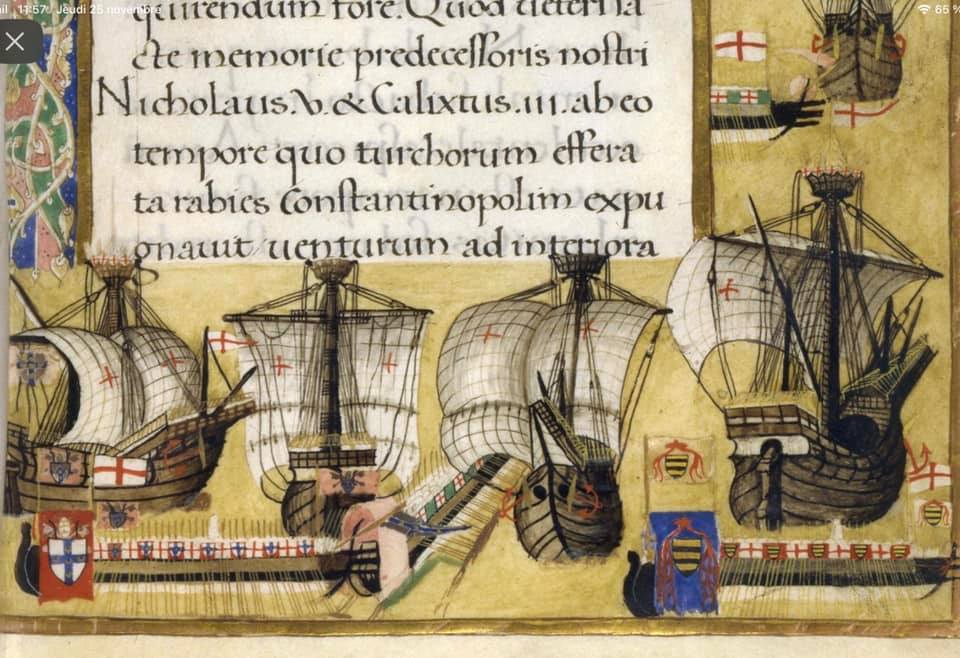 11:57 Jeudi 25 novembre
65 %
quirendum fore. Quod veteri sa
cte memorie predecessoris nostri
Nicholaus.V. & Calixtus.iii. ab eo
tempore quo turchorum effera
ta rabies Constantinopolim expu
gnavit venturum ad interiora